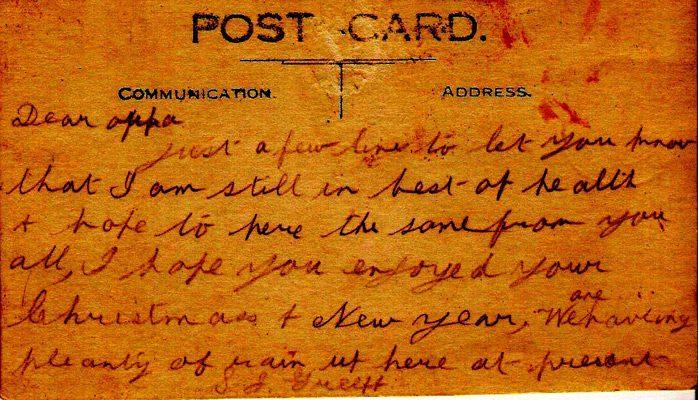 POST CARD.
COMMUNICATION. ADDRESS.
Dear oppa
just a few line to let you know
that I am still in best of health
+ hope to here the same from you
all, I hope you enjoyed your
Christmass + New year, We are haveing
pleanty of rain up here at present